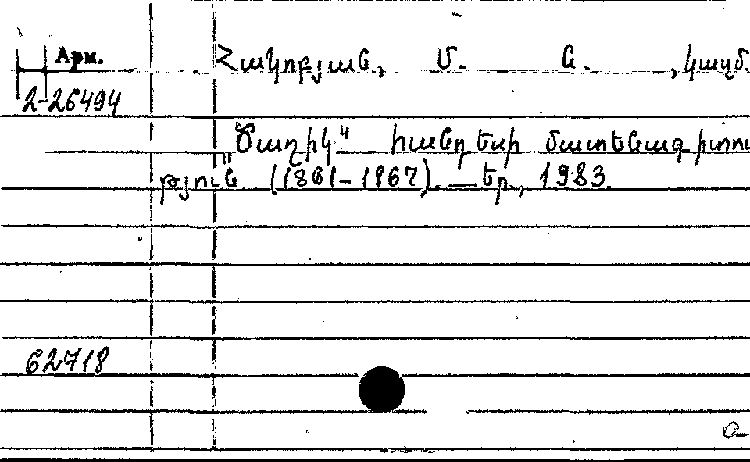 Арм.
Հակոբյան, Մ. Ն. , կազմ.
2-26494
"Ծաղիկ" հանդեսի մատենագիտու
թյուն (1861-1867). — Եր., 1983.
62718